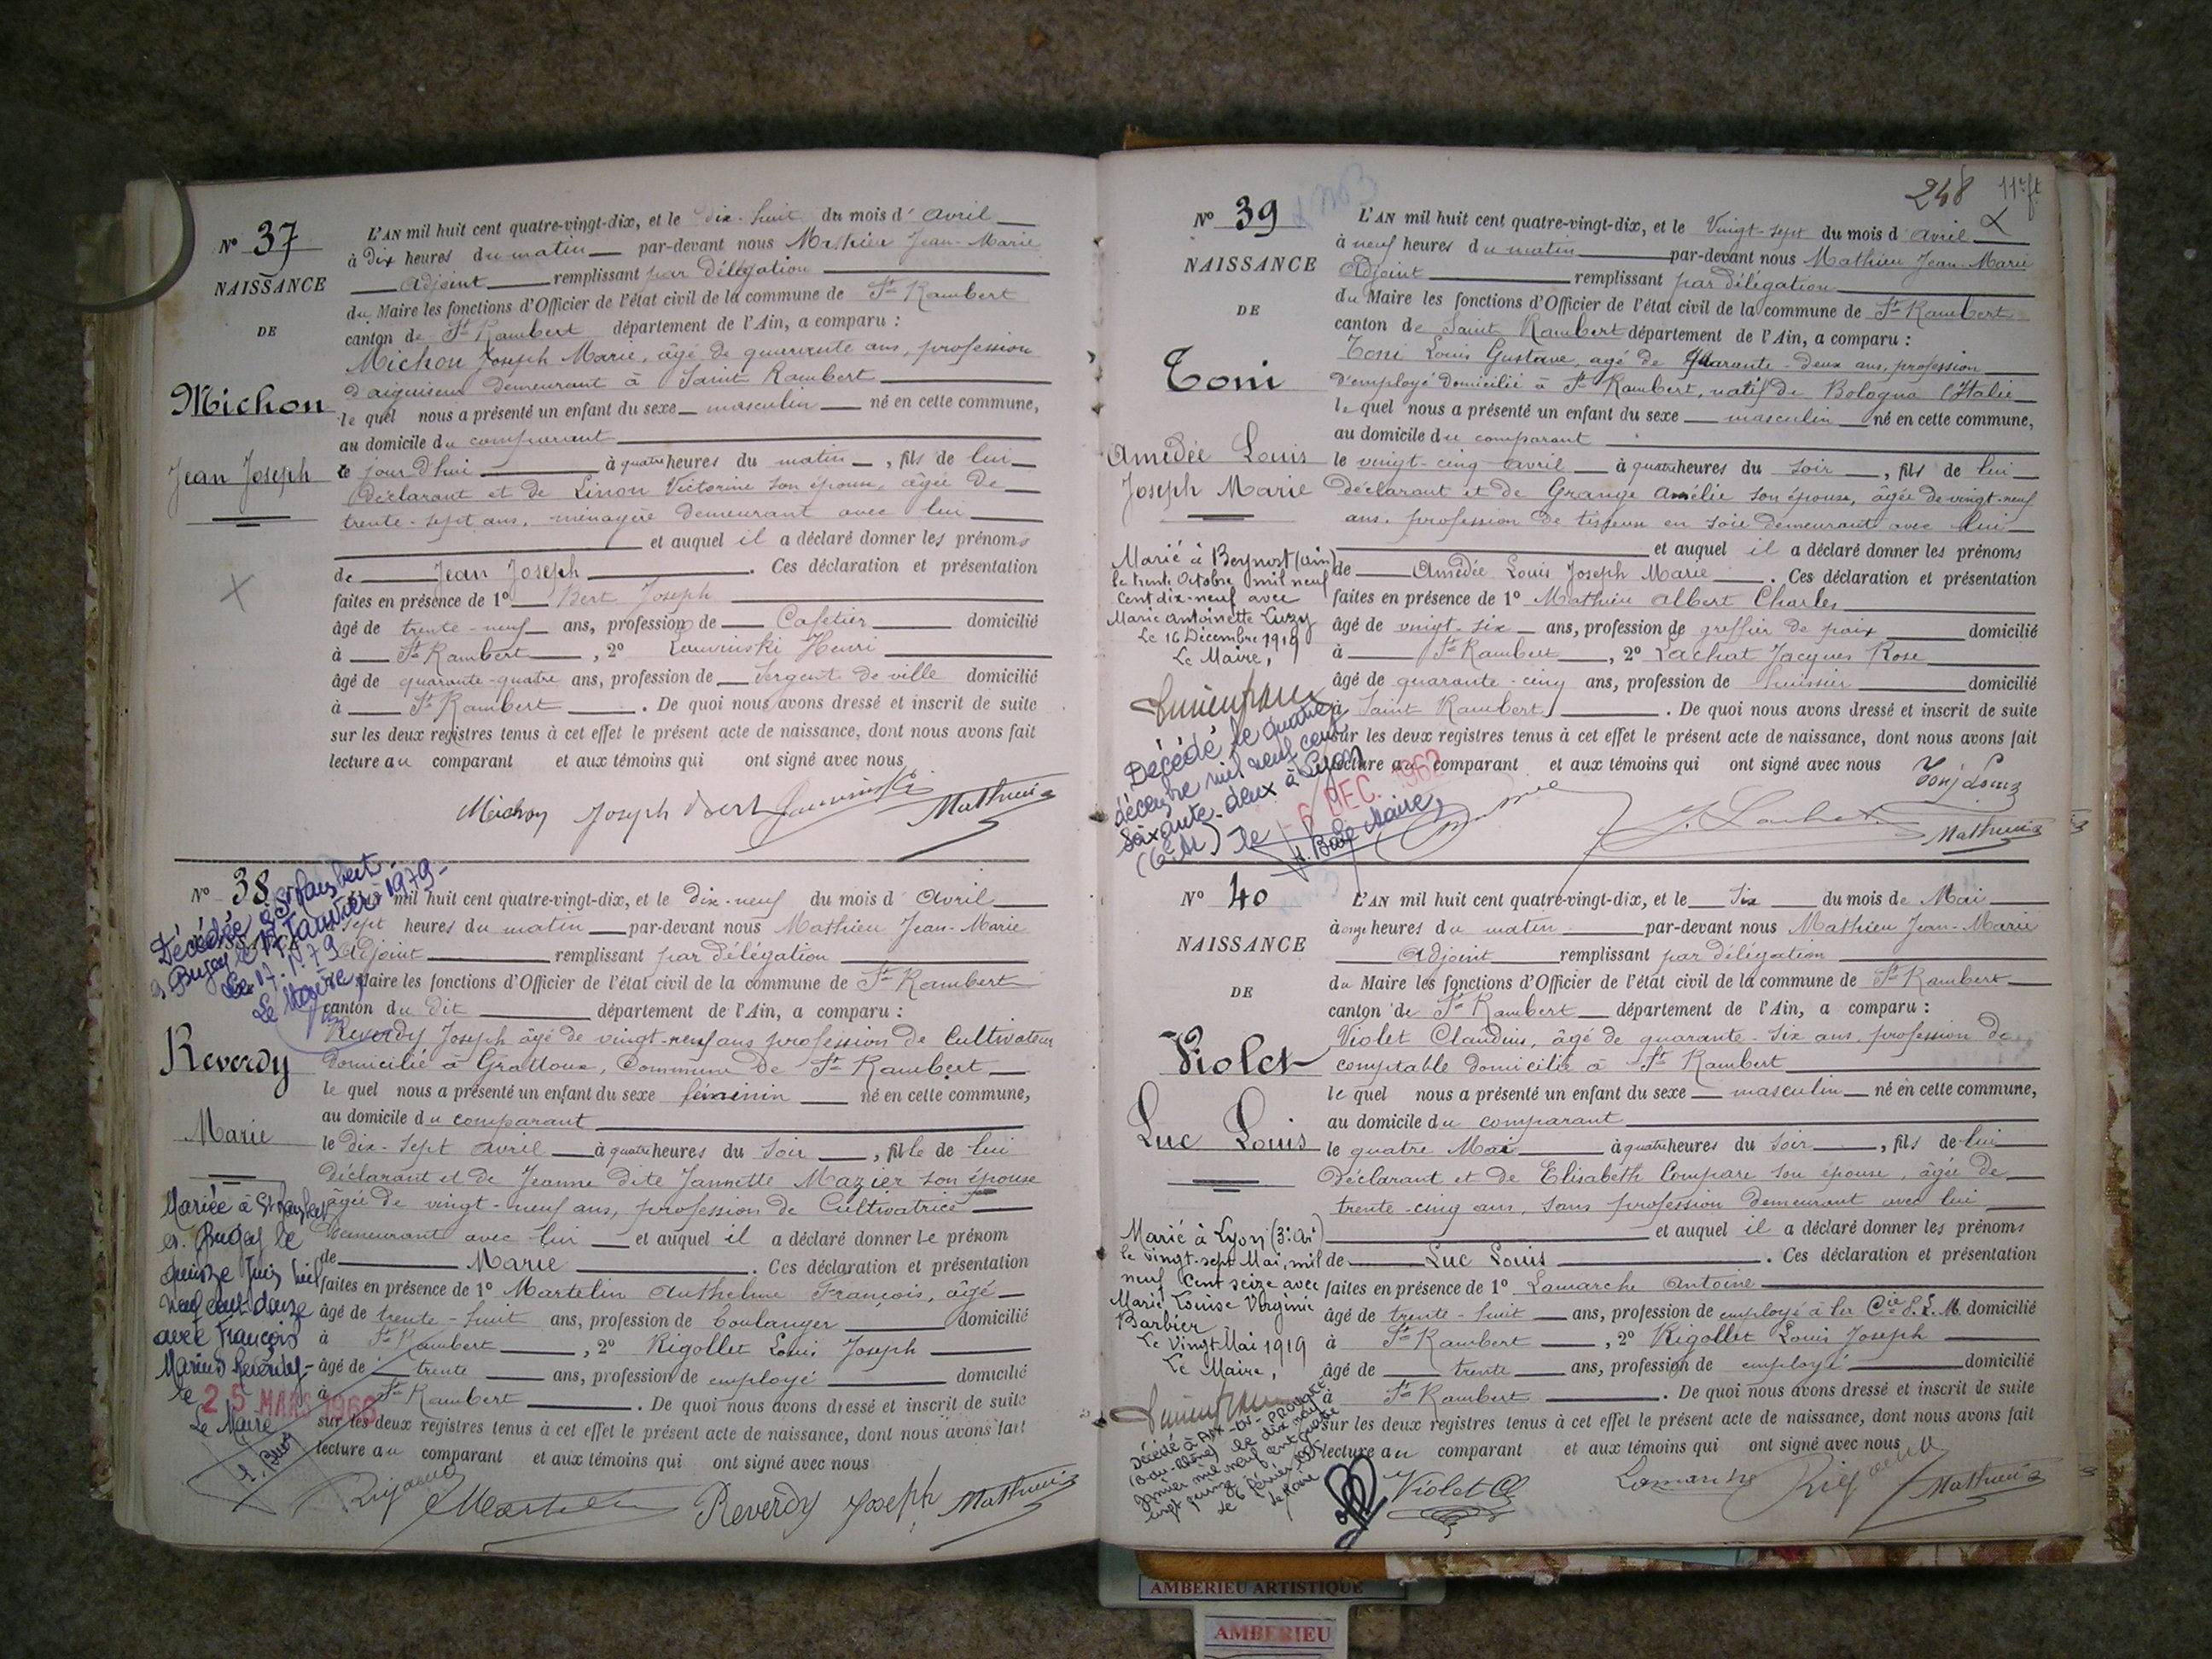 N° 37
NAISSANCE
DE
Michon
Jean Joseph
L'AN mil huit cent quatre-vingt-dix, et le dix-huit du mois d' avril
à dix heures du matin par-devant nous Mathieu Jean-Marie
Adjoint remplissant par délégation
du Maire les fonctions d'Officier de l'état civil de la commune de St Rambert
canton de St Rambert département de l'Ain, a comparu :
Michon Joseph Marie, âgé de quarante ans, profession
d'aiguiseur demeurant à Saint Rambert
le quel nous a présenté un enfant du sexe masculin né en cette commune,
au domicile du comparant
ce jour d'hui à quatre heures du matin, fils de lui
déclarant et de Linon Victorine son épouse, âgée de
trente-sept ans, ménagère demeurant avec lui
et auquel il a déclaré donner les prénoms
de Jean Joseph. Ces déclaration et présentation
faites en présence de 1° Bert Joseph
âgé de trente-neuf ans, profession de Cafetier domicilié
à St Rambert, 2° Louvinski Henri
âgé de quarante-quatre ans, profession de Sergent de ville domicilié
à St Rambert. De quoi nous avons dressé et inscrit de suite
sur les deux registres tenus à cet effet le présent acte de naissance, dont nous avons fait
lecture au comparant et aux témoins qui ont signé avec nous
Michon Joseph Bert Mathieu
N° 38
Décédée à St Rambert
en Bugey le Janvier 1979
Le 17.1.79
Le Maire,
Reverdy
Marie
L'AN mil huit cent quatre-vingt-dix, et le dix-neuf du mois d' avril
sept heures du matin par-devant nous Mathieu Jean-Marie
Adjoint remplissant par délégation
du Maire les fonctions d'Officier de l'état civil de la commune de St Rambert
canton du dit département de l'Ain, a comparu :
Reverdy Joseph âgé de vingt-neuf ans profession de Cultivateur
domicilié à Grattoux, Commune de St Rambert
le quel nous a présenté un enfant du sexe féminin né en cette commune,
au domicile du comparant
le dix-sept avril à quatre heures du soir, fille de lui
déclarant et de Jeanne dite Jannette Mazier son épouse
âgée de vingt-neuf ans, profession de Cultivatrice
demeurant avec lui et auquel il a déclaré donner le prénom
de Marie. Ces déclaration et présentation
faites en présence de 1° Martelin Anthelme François, âgé
âgé de trente-huit ans, profession de boulanger domicilié
à St Rambert, 2° Rigollet Louis Joseph
âgé de trente ans, profession de employé domicilié
à St Rambert. De quoi nous avons dressé et inscrit de suite
sur les deux registres tenus à cet effet le présent acte de naissance, dont nous avons fait
lecture au comparant et aux témoins qui ont signé avec nous
Mariée à St Rambert
en Bugey le
quinze Juin mil
neuf cent douze
avec François
Marius Reverdy
le 25 MARS 1966
Le Maire
Reverdy Joseph Mathieu
248 11e ft
N° 39
NAISSANCE
DE
Toni
Amédée Louis
Joseph Marie
L'AN mil huit cent quatre-vingt-dix, et le Vingt-sept du mois d' avril
à neuf heures du matin par-devant nous Mathieu Jean-Marie
Adjoint remplissant par délégation
du Maire les fonctions d'Officier de l'état civil de la commune de St Rambert
canton de Saint Rambert département de l'Ain, a comparu :
Toni Louis Gustave, âgé de quarante-deux ans, profession
d'employé domicilié à St Rambert, natif de Bologna (Italie
le quel nous a présenté un enfant du sexe masculin né en cette commune,
au domicile du comparant
le vingt-cinq avril à quatre heures du soir, fils de lui
déclarant et de Grange Amélie son épouse, âgée de vingt-neuf
ans, profession de tisseuse en soie demeurant avec lui
et auquel il a déclaré donner les prénoms
de Amédée Louis Joseph Marie. Ces déclaration et présentation
faites en présence de 1° Mathieu Albert Charles
âgé de vingt-six ans, profession de greffier de paix domicilié
à St Rambert, 2° Lachat Jacques Rose
âgé de quarante-cinq ans, profession de huissier domicilié
à Saint Rambert. De quoi nous avons dressé et inscrit de suite
sur les deux registres tenus à cet effet le présent acte de naissance, dont nous avons fait
lecture au comparant et aux témoins qui ont signé avec nous
Marié à Beynost (ain)
le trente Octobre mil neuf
cent dix-neuf avec
Marie Antoinette Luzy
Le 16 Décembre 1919
Le Maire,
Décédé le quatre
décembre mil neuf cent
soixante-deux à Lyon
(6e Ar) le 6 DEC. 1962
Maire,
Toni Louis
Mathieu
N° 40
NAISSANCE
DE
Violet
Luc Louis
L'AN mil huit cent quatre-vingt-dix, et le Six du mois de Mai
à onze heures du matin par-devant nous Mathieu Jean-Marie
Adjoint remplissant par délégation
du Maire les fonctions d'Officier de l'état civil de la commune de St Rambert
canton de St Rambert département de l'Ain, a comparu :
Violet Claudius, âgé de quarante-six ans profession de
comptable domicilié à St Rambert
le quel nous a présenté un enfant du sexe masculin né en cette commune,
au domicile du comparant
le quatre Mai à quatre heures du soir, fils de lui
déclarant et de Elisabeth Compare son épouse, âgée de
trente-cinq ans, sans profession demeurant avec lui
et auquel il a déclaré donner les prénoms
de Luc Louis. Ces déclaration et présentation
faites en présence de 1° Lamarche Antoine
âgé de trente-huit ans, profession de employé à la Cie P.L.M. domicilié
à St Rambert, 2° Rigollet Louis Joseph
âgé de trente ans, profession de employé domicilié
à St Rambert. De quoi nous avons dressé et inscrit de suite
sur les deux registres tenus à cet effet le présent acte de naissance, dont nous avons fait
lecture au comparant et aux témoins qui ont signé avec nous
Marié à Lyon (3e Art)
le vingt-sept Mai, mil
neuf Cent seize avec
Marie Louise Virginie
Barbier
Le Vingt Mai 1919
Le Maire,
Décédé à AIX-EN-PROVENCE
(B-du-Rhône) le dix neuf
Janvier mil neuf cent quatre
vingt quinze
Le 6 Février 1995
Le Maire
Violet Cl Lamarche Mathieu
AMBERIEU ARTISTIQUE
AMBERIEU